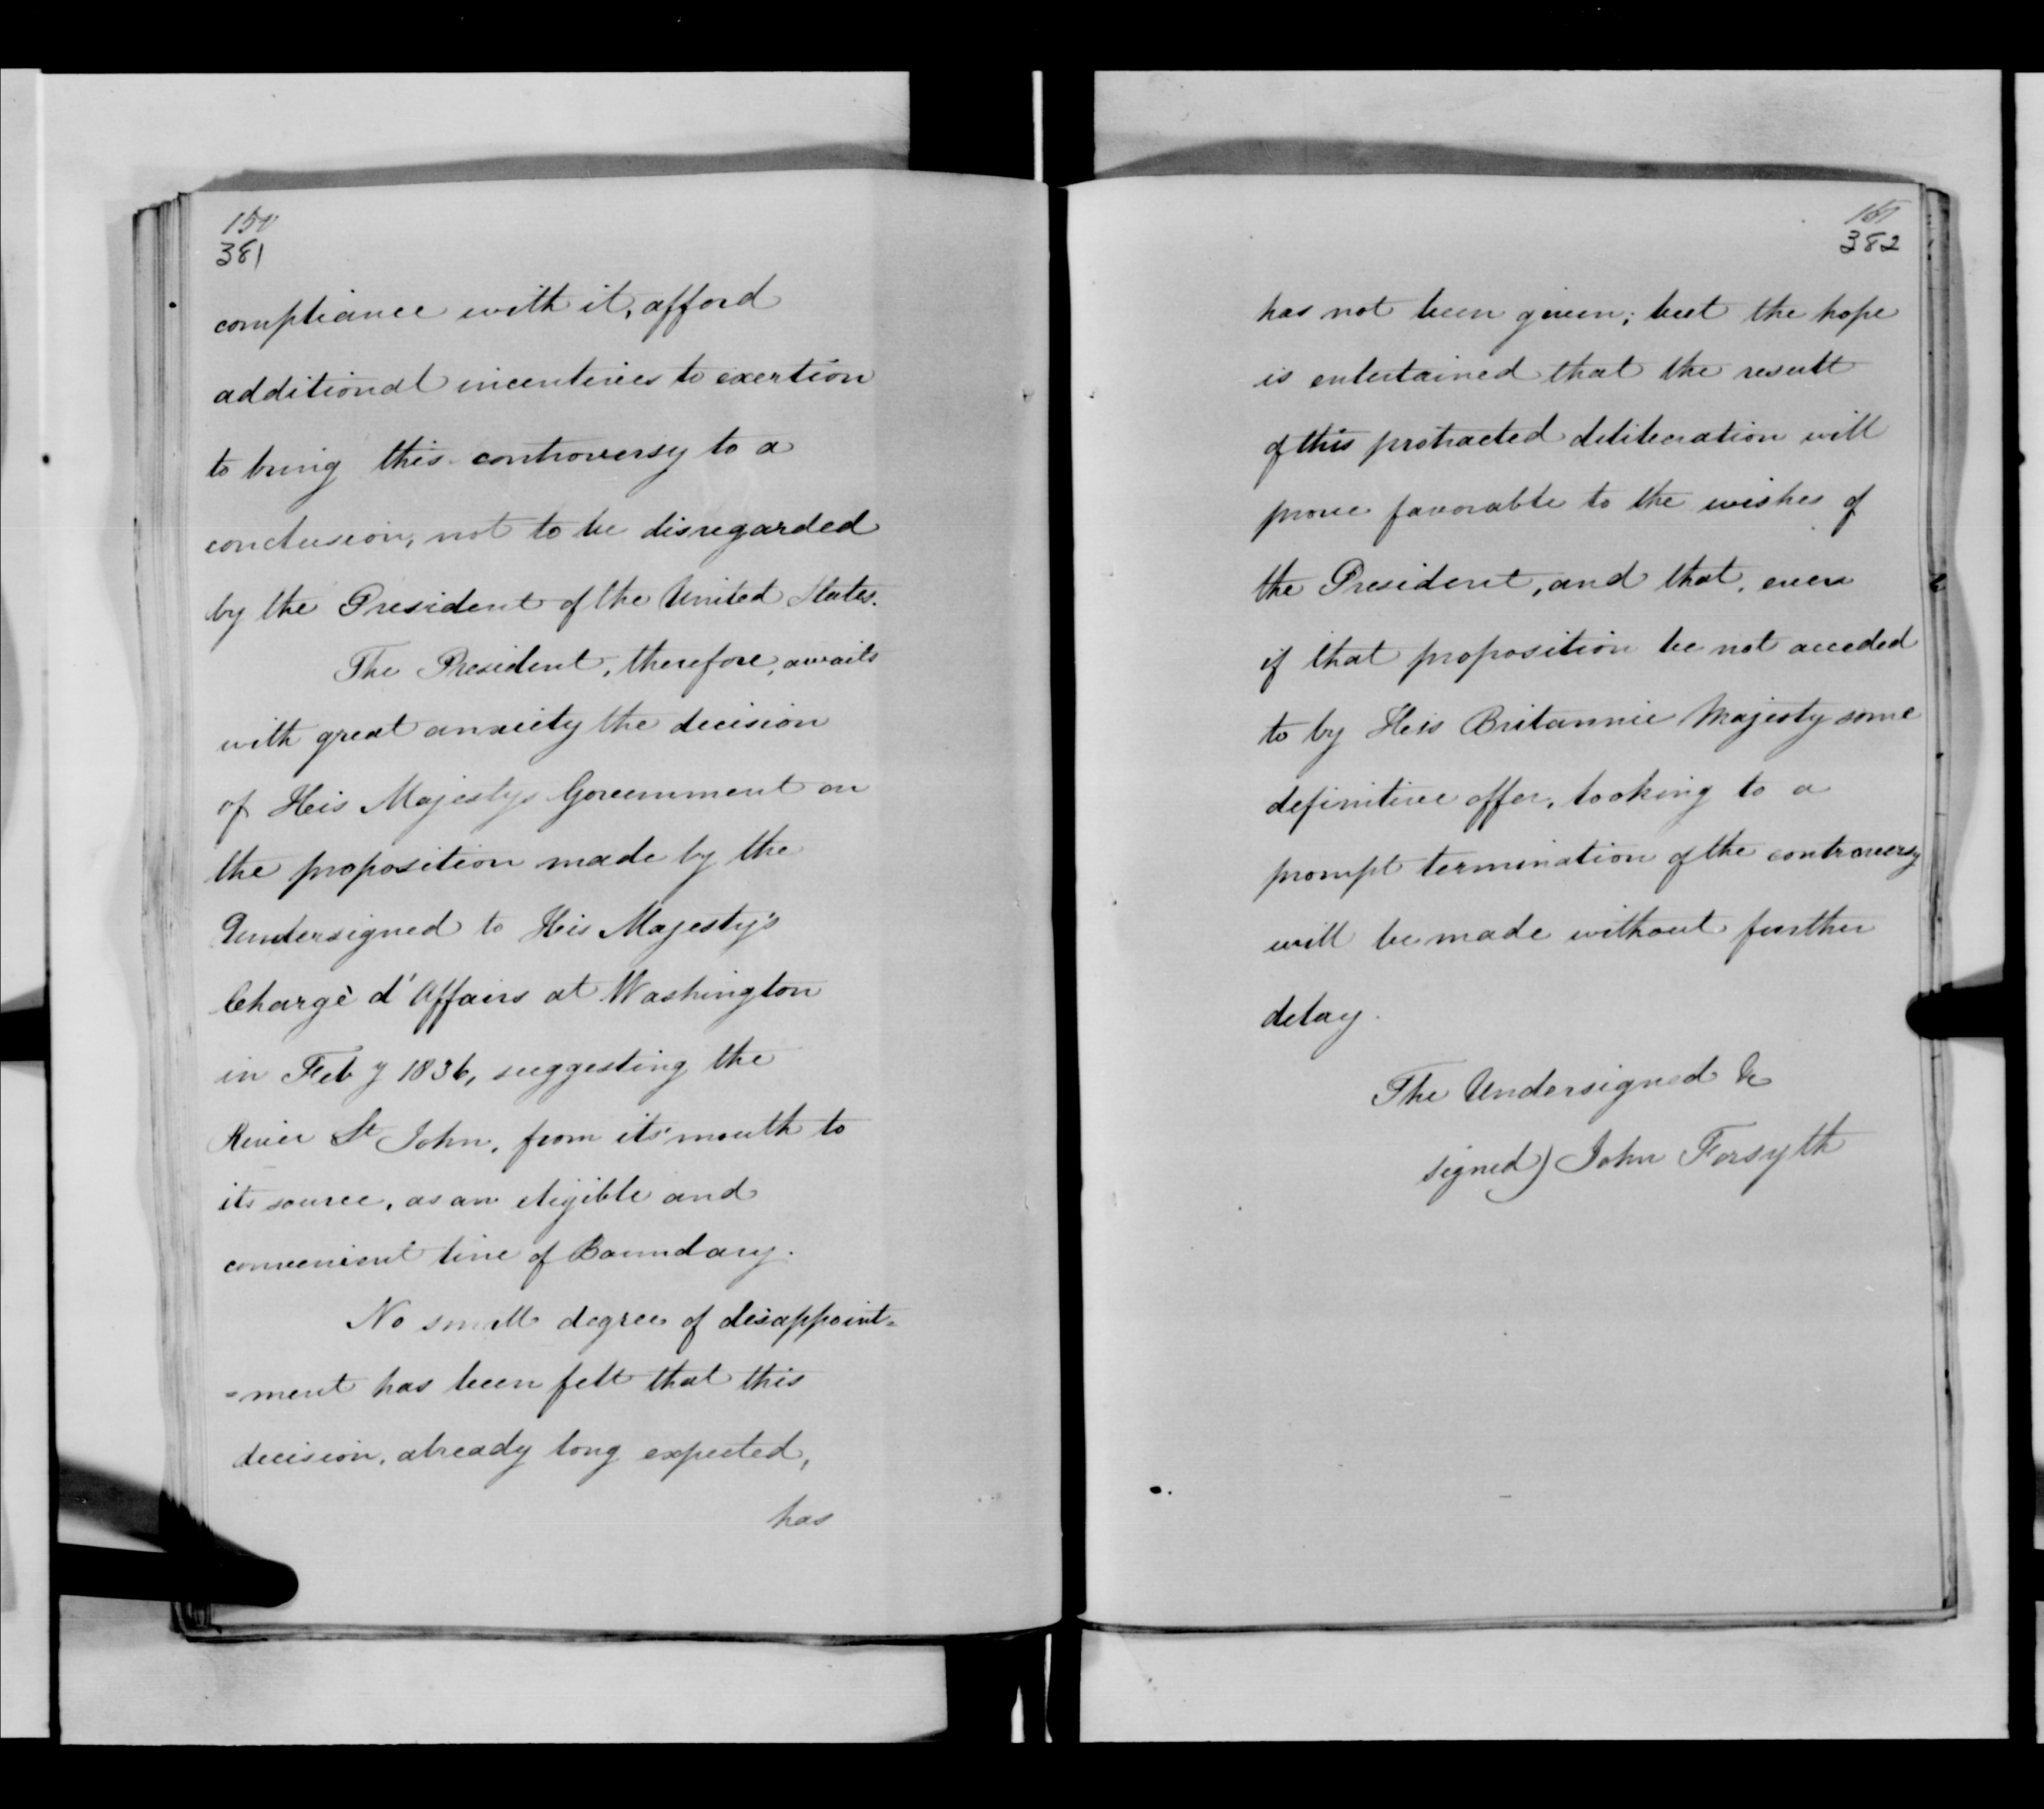 150
381
compliance with it, afford
additional incentives to exertion
to bring this controversy to a
conclusion, not to be disregarded
by the President of the United States.
The President, therefore, awaits
with great anxiety the decision
of His Majestys Government on
the proposition made by the
Undersigned to His Majesty's
Chargè d'Affairs at Washington
in Feby 1836, suggesting the
River St John, from its mouth to
its source, as an eligible and
convenient line of Boundary.
No small degree of disappoint=
=ment has been felt that this
decision, already long expected,
has
151
382
has not been given; but the hope
is entertained that the result
of this protracted deliberation will
prove favorable to the wishes of
the President, and that, even
if that proposition be not acceded
to by His Britannic Majesty some
definitive offer, looking to a
prompt termination of the controversy
will be made without further
delay.
The Undersigned &c
signed) John Forsyth